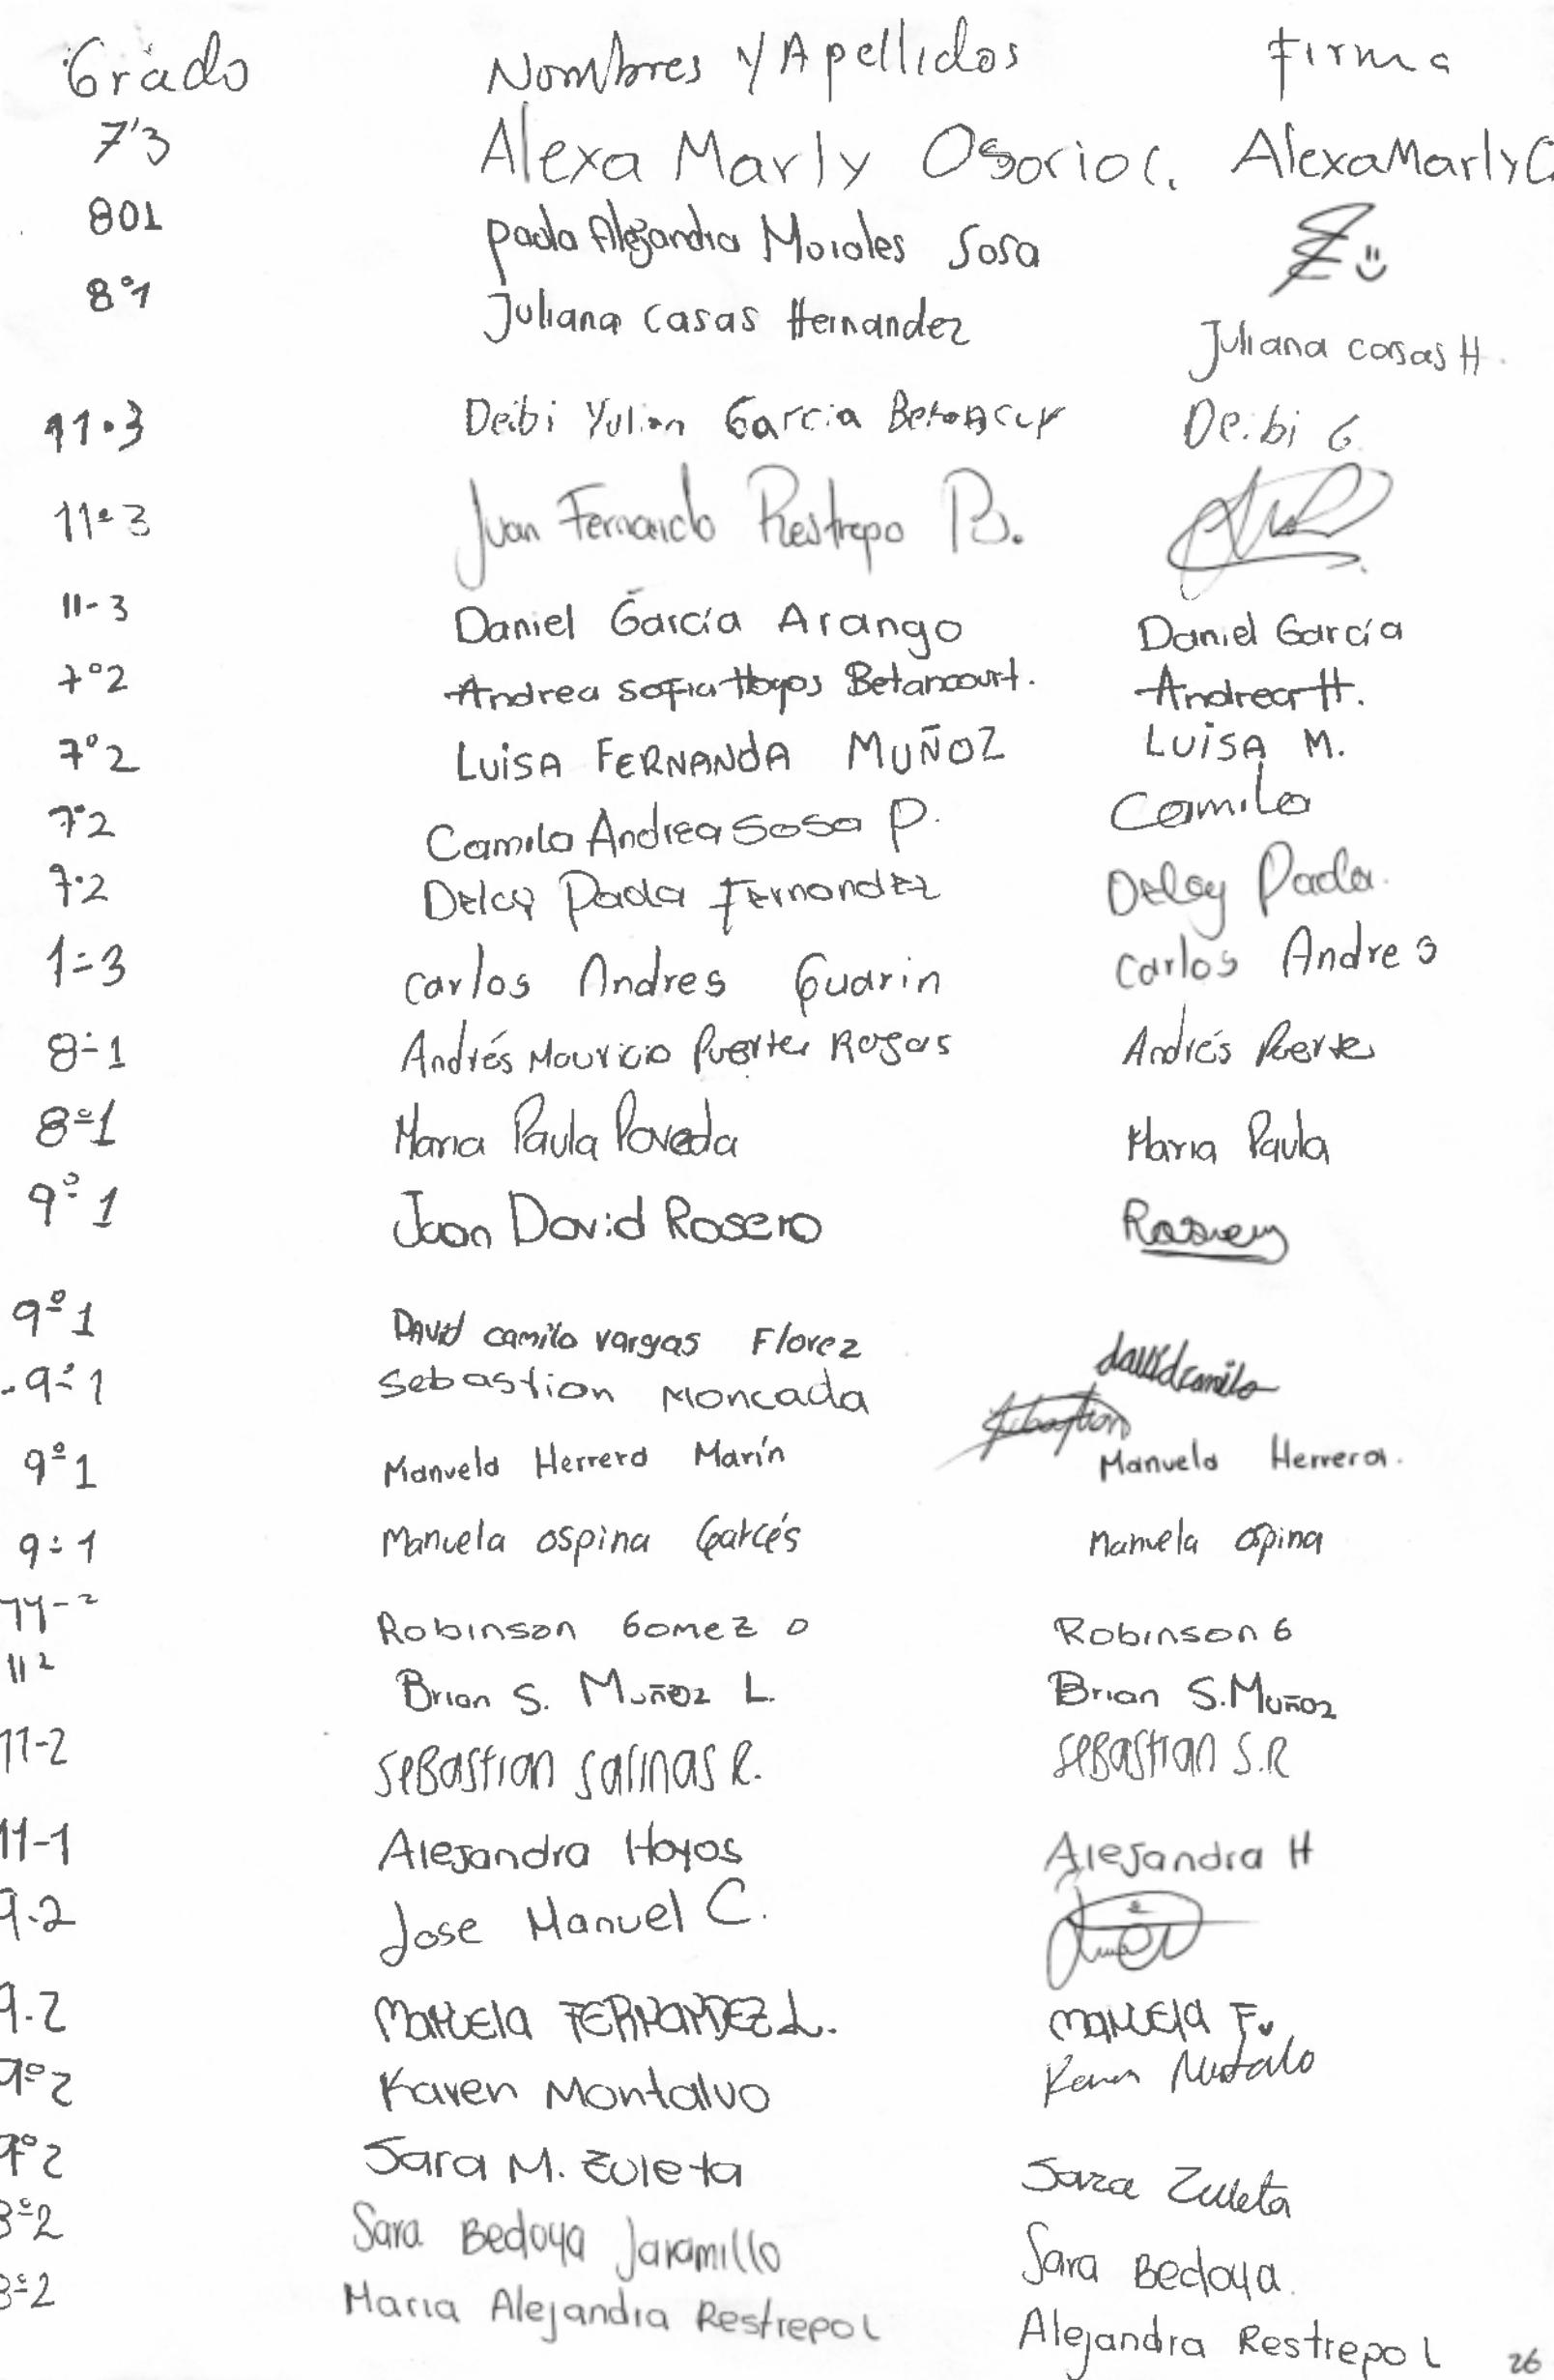 Grado Nombres y Apellidos Firma
7°3 Alexa Marly Osorio C. Alexa Marly C
801 Paola Alejandra Morales Sosa
8°1 Juliana Casas Hernandez Juliana casas H.
11°3 Deibi Yulian Garcia Betancur Deibi G.
11°3 Juan Fernando Restrepo B.
11-3 Daniel García Arango Daniel García
7°2 Andrea Sofia Hoyos Betancourt. Andrea H.
7°2 LUISA FERNANDA MUÑOZ LUISA M.
7°2 Camila Andrea Sosa P. Camila
7°2 Delcy Paola Fernandez Delcy Paola.
1=3 Carlos Andres Guarin Carlos Andres
8=1 Andrés Mauricio Puertes Rojas Andrés Puertes
8º1 Maria Paula Poveda Maria Paula
9º1 Juan David Rosero
9º1 David camilo vargas Florez david camilo
9º1 Sebastian Moncada Sebastian
9º1 Manuela Herrera Marín Manuela Herrera.
9=1 Manuela Ospina Garcés Manuela Ospina
11-2 Robinson Gomez O Robinson G
11 2 Brian S. Muñoz L. Brian S. Muñoz
11-2 Sebastian Salinas R. Sebastian S.R
11-1 Alejandra Hoyos Alejandra H
9.2 Jose Manuel C.
9.2 Manuela FERNANDEZ L. Manuela F.
9º2 Karen Montalvo Karen Montalvo
9º2 Sara M. Zuleta Sara Zuleta
8º2 Sara Bedoya Jaramillo Sara Bedoya.
8º2 Maria Alejandra Restrepo L Alejandra Restrepo L
26